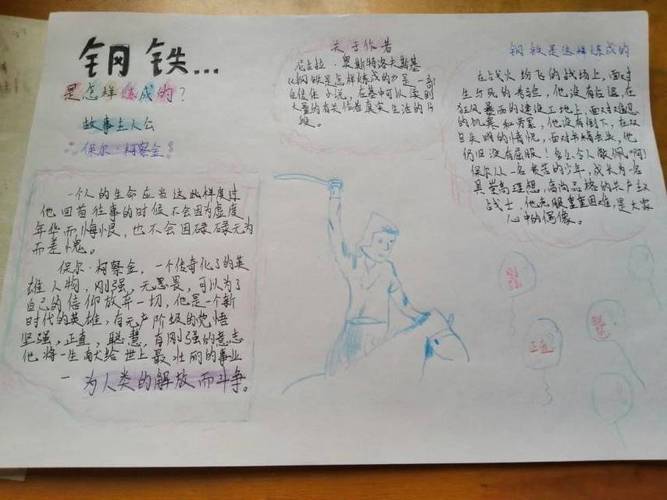 钢铁...
是怎样炼成的？
故事主人公
保尔·柯察金
一个人的生命应当这样度过
他回首往事的时候不会因为虚度
年华而悔恨，也不会因碌碌无为
而羞愧。
保尔·柯察金，一个传奇化了的英
雄人物，刚强，无恶畏，可以为了
自己的信仰放弃一切，他是一个新
时代的英雄，有无产阶级的觉悟
坚强，正直，聪慧，有刚强的意志
他将一生献给世上最壮丽的事业
一为人类的解放而斗争。
关于作者
尼古拉·奥斯特洛夫斯基
《钢铁是怎样炼成的》是一部
自传体小说，在其中可以读到
大量的有关作者真实生活的片
段。
钢铁是这样炼成的
在战火纷飞的战场上，面对
生与死的考验，他没有后退，在
狂风暴雨的建设工地上，面对
的饥寒和劳累，他没有倒下，在双
目失明的情况，面对
仍旧没有屈服！多么令人敬佩啊！
保尔从一名 的少年，成长为一名
具崇高理想，高尚品格的共产主义
战士，他克服重重困难，是大家
心中的偶像。
正直